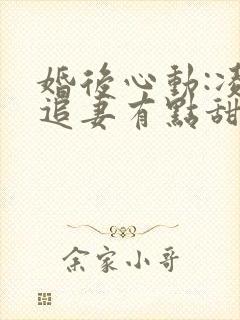 婚後心動:凌
追妻有點甜
余家小哥